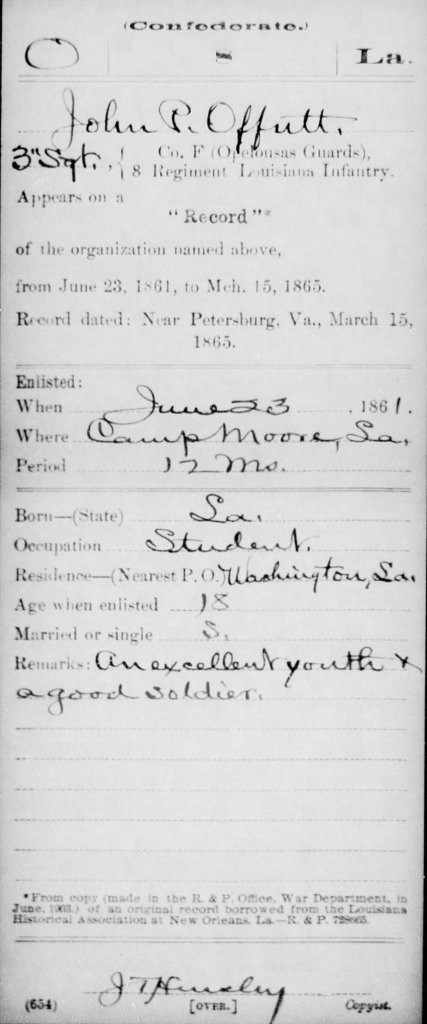 (Confederate.)
O 8 La.
John P. Offutt.
3" Sgt., { Co. F (Opelousas Guards),
8 Regiment Louisiana Infantry.
Appears on a
"Record"*
of the organization named above,
from June 23, 1861, to Mch. 15, 1865.
Record dated: Near Petersburg, Va., March 15,
1865.
Enlisted:
When June 23, 1861.
Where Camp Moore, La.
Period 12 Mo.
Born—(State) La.
Occupation Student.
Residence—(Nearest P. O.) Washington, La.
Age when enlisted 18
Married or single S.
Remarks: An excellent youth &
a good soldier.
*From copy (made in the R. & P. Office, War Department, in
June, 1903,) of an original record borrowed from the Louisiana
Historical Association at New Orleans, La.—R. & P.
J T
(654) [OVER.] Copyist.